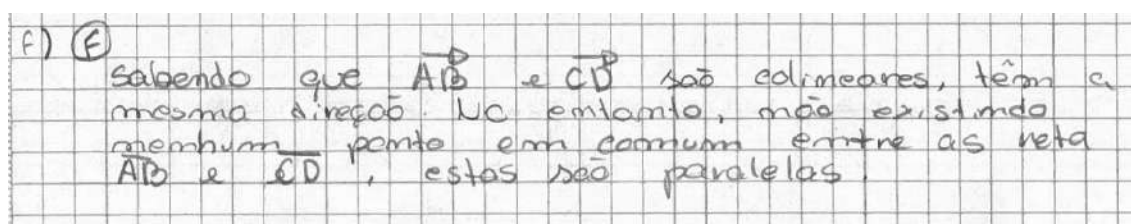 f) (F)
Sabendo que \overrightarrow{AB} e \overrightarrow{CD} são colineares, têm a
mesma direção. No entanto, não existindo
nenhum ponto em comum entre as reta
\overline{AB} e \overline{CD}, estas são paralelas.